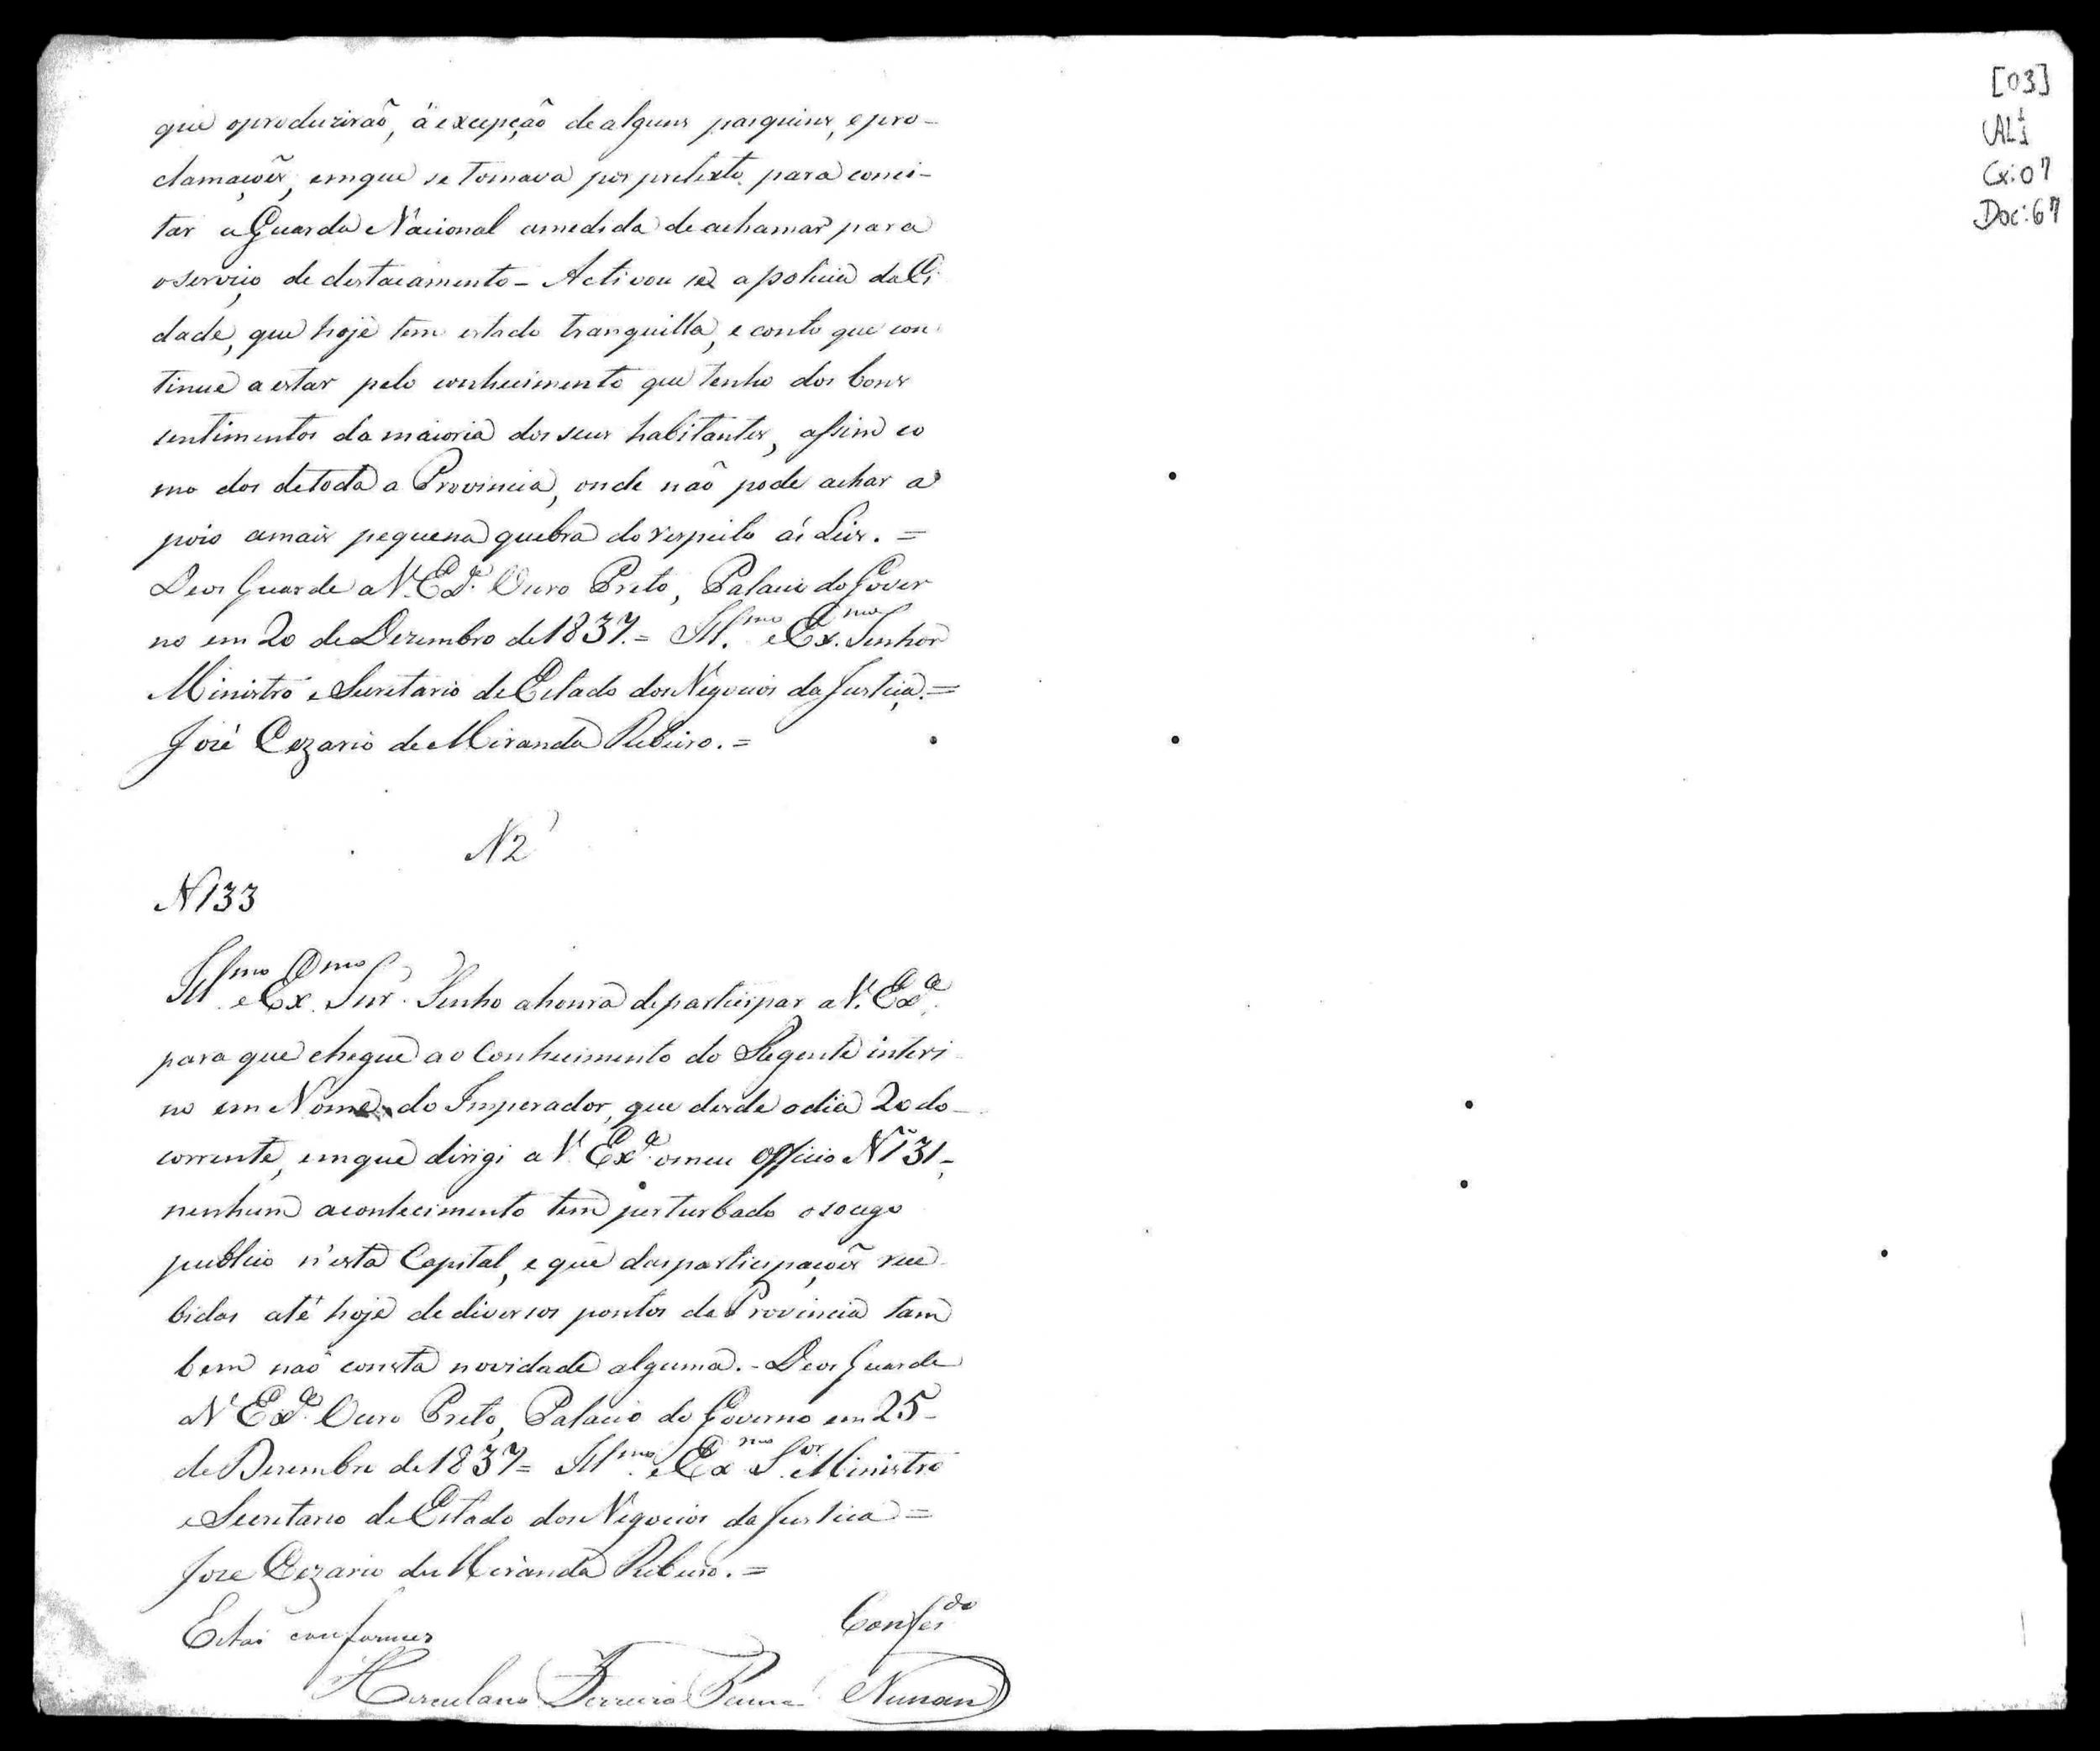 que oproduzirão, á excepção de alguns pasquins, e pro-
clamações, emque se tomava por pretexto para conci-
tar a Guarda Nacional amedida de achamar para
oserviço de destacamento - Activou se a policia da Ci
dade, que hoje tem estado tranquilla, e conto que con
tinue a estar pelo conhecimento que tenho dos bons
sentimentos da maioria dos seus habitantes, assim co
mo dos detoda a Provincia, onde não pode achar a
poio amais pequena quebra do respeito ás Leis. =
Deos Guarde a V. Exª. Ouro Preto, Palacio do Gover
no em 20 de Dezembro de 1837. = Illmo. e Exmo. Senhor
Ministro e Secretario de Estado dos Negocios da Justiça. =
José Cezario de Miranda Ribeiro. =
N 2
N 133
Illmo. e Exmo. Snr. Tenho ahonra departicipar a V. Exª.
para que chegue ao Conhecimento do Regente interi
no em Nome do Imperador, que desde odia 20 do
corrente, emque dirigi a V. Exª. omeu Officio Nº 131 -,
nenhum acontecimento tem perturbado osocego
publico n'esta Capital, e que das participações rece
bidas até hoje de diversos pontos da Provincia tam
bem não consta novidade alguma. - Deos Guarde
a V Exª. Ouro Preto, Palacio do Governo em 25 -
de Dezembro de 1837 = Illmo. e Exmo Sor. Ministro
e Secretario de Estado dos Negocios da Justiça =
Jose Cezario de Miranda Ribeiro. =
Estaõ conformes
Confedo
Herculano Ferreira Penna
Nunan
[03]
Cx: 07
Doc: 67